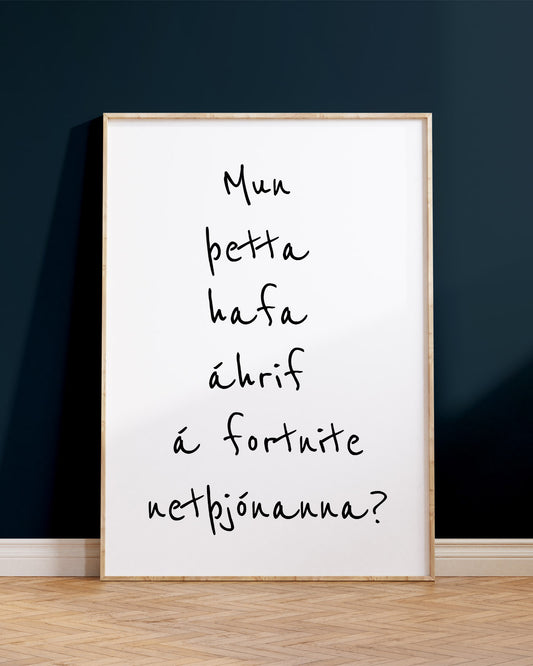 Mun
þetta
hafa
áhrif
á fortnite
netþjónanna?